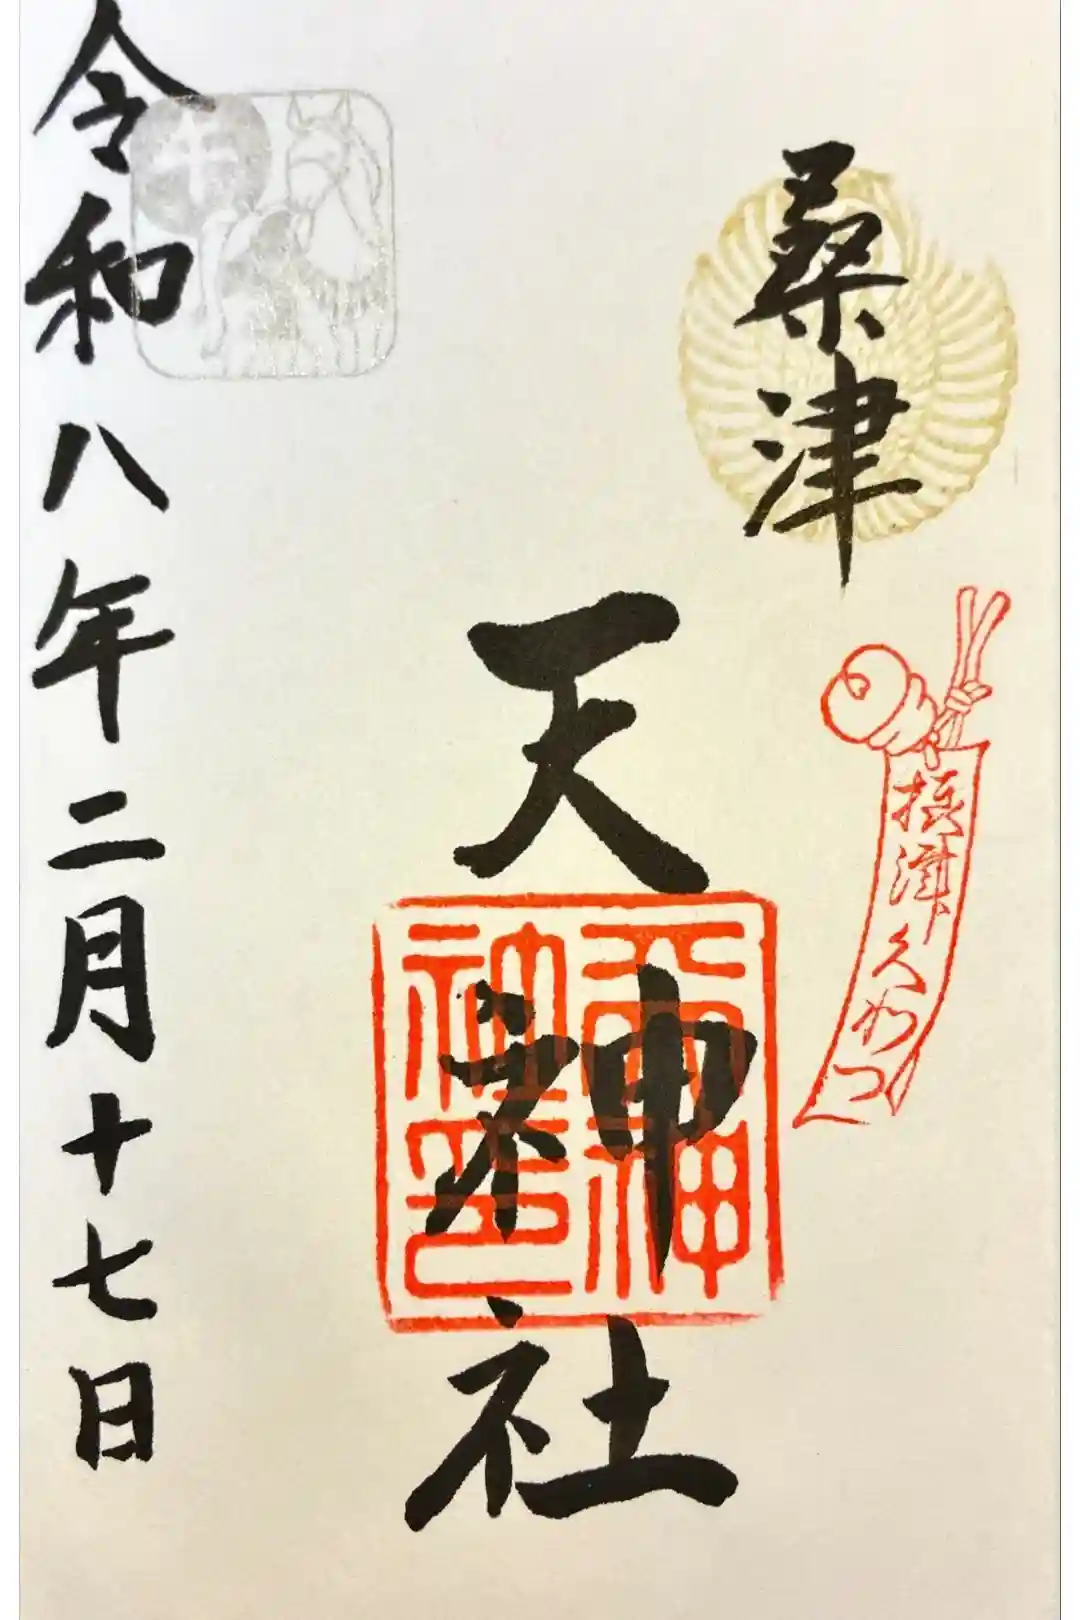 桑津
摂津くわつ
天神社
天神社印
午
令和八年二月十七日